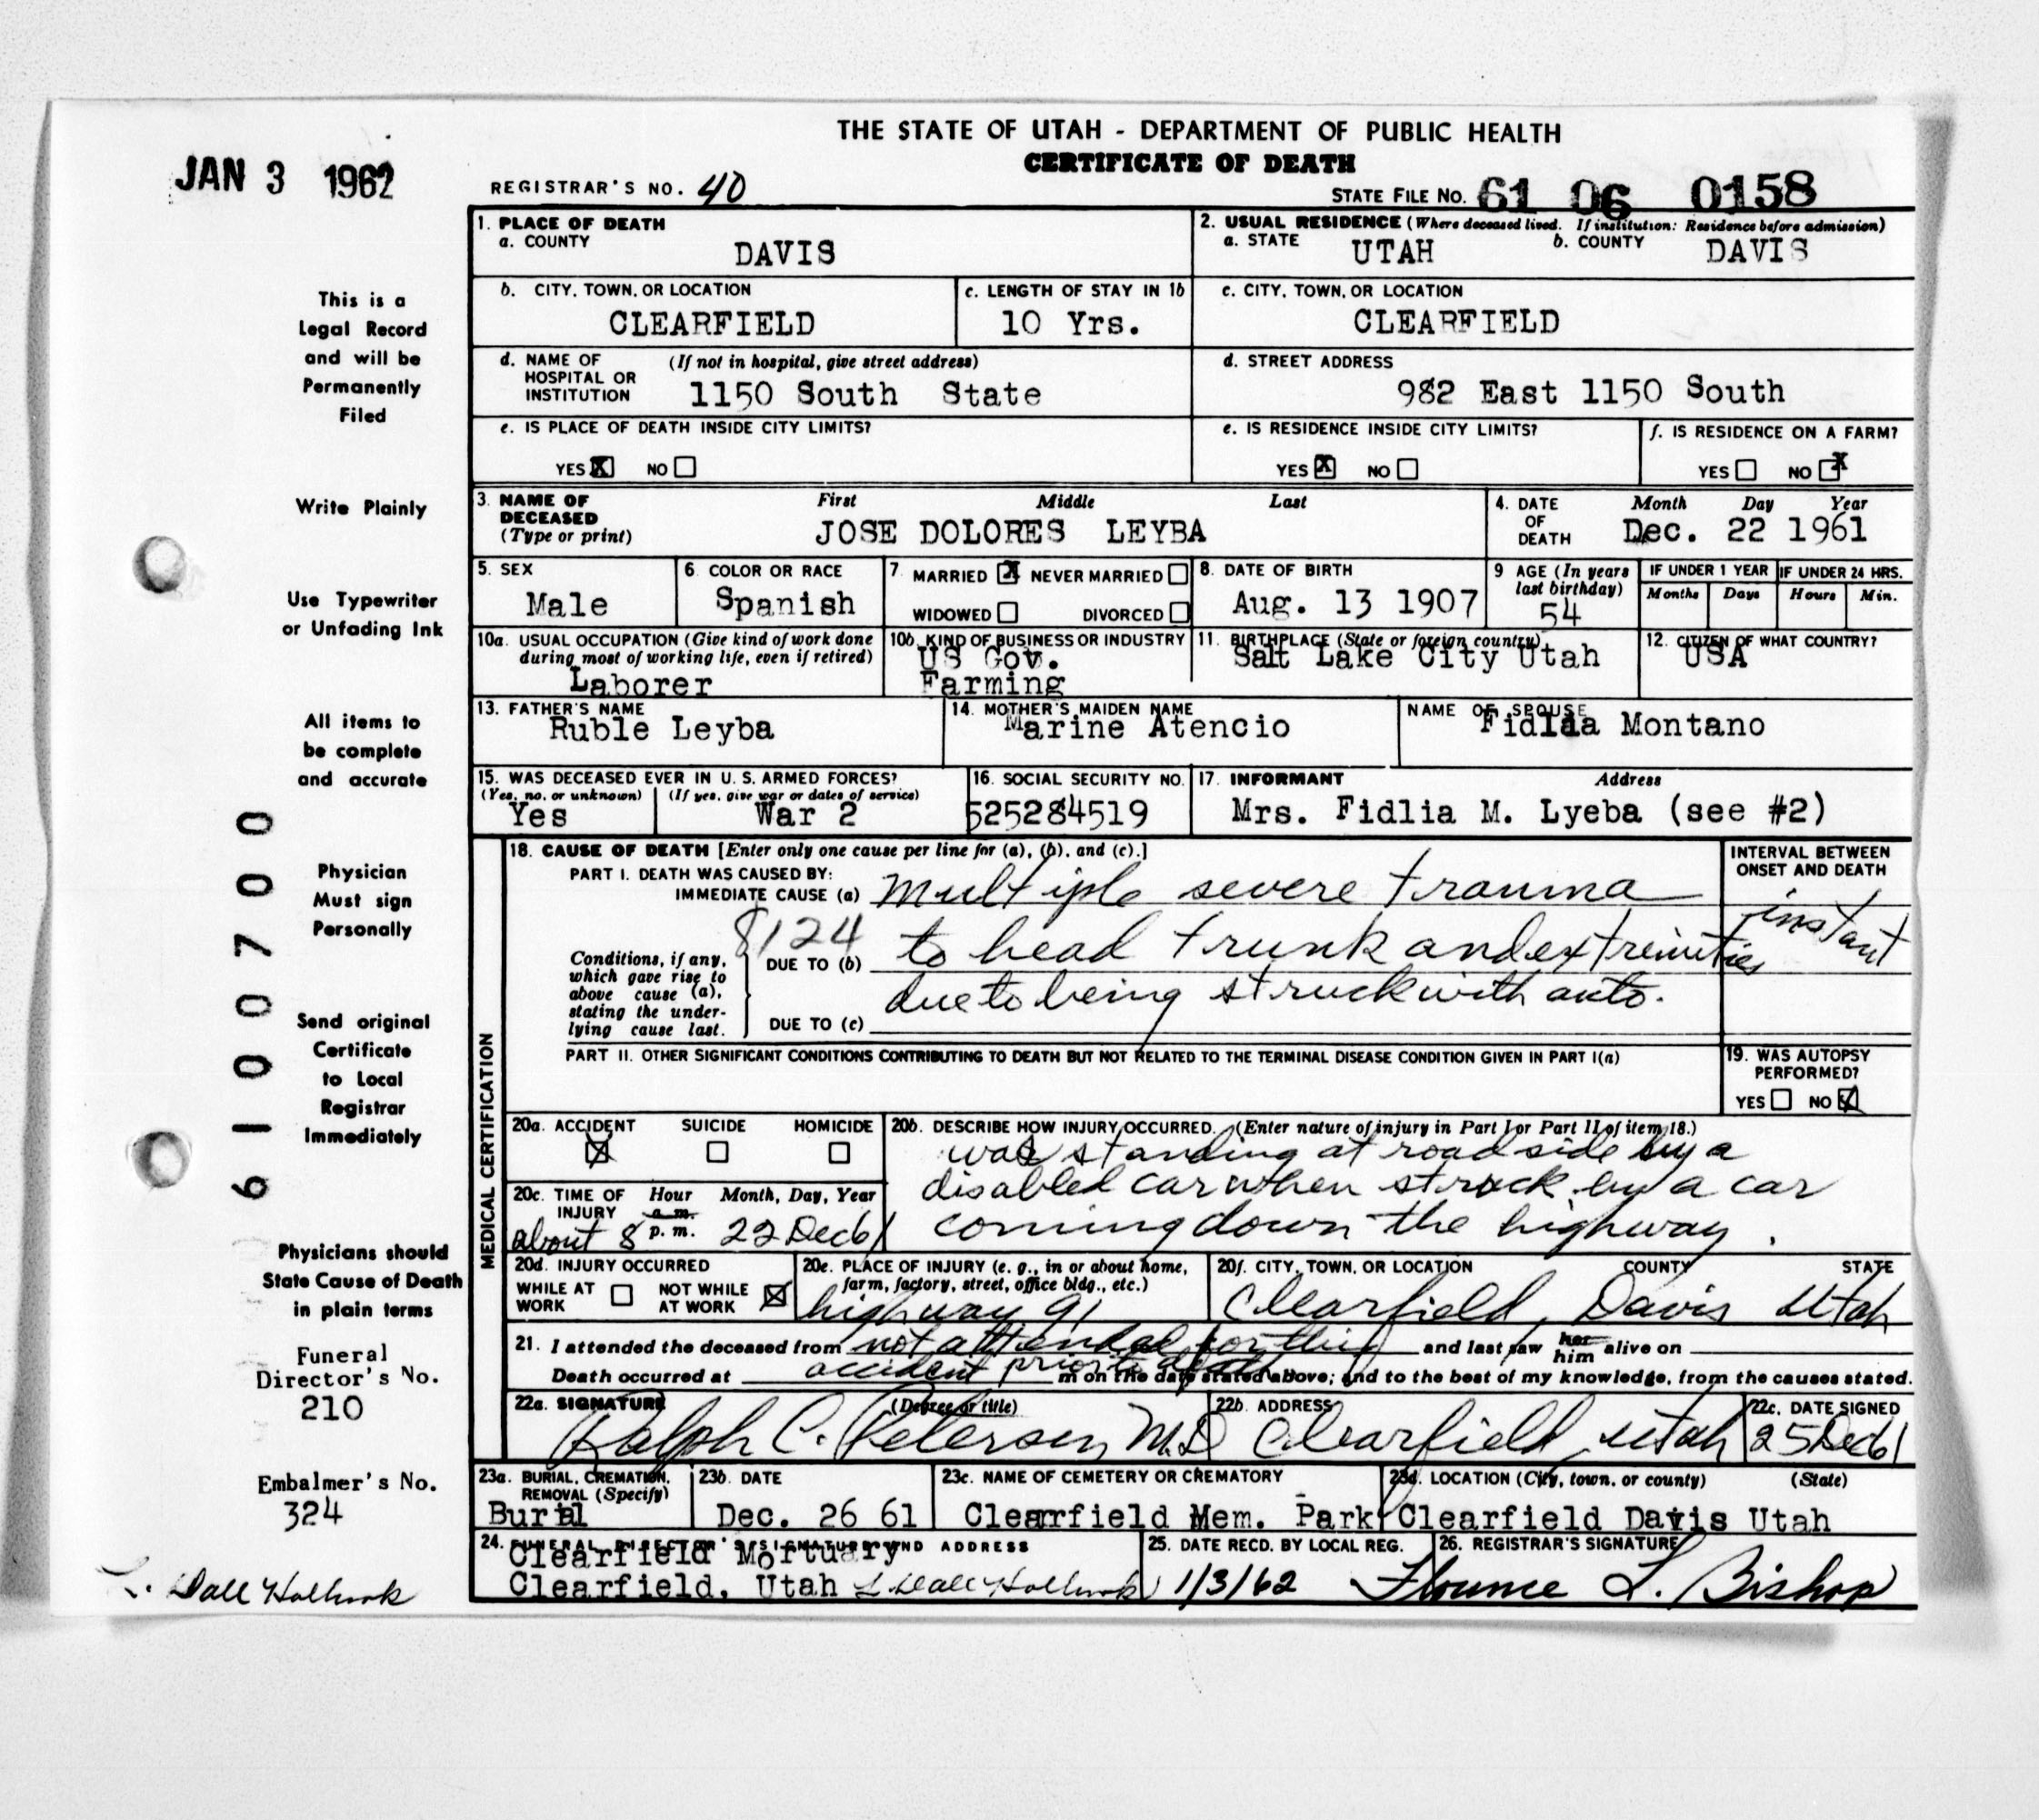 THE STATE OF UTAH - DEPARTMENT OF PUBLIC HEALTH
CERTIFICATE OF DEATH
JAN 3 1962
REGISTRAR'S NO. 40
STATE FILE NO. 61 06 0158
1. PLACE OF DEATH
a. COUNTY
DAVIS
2. USUAL RESIDENCE (Where deceased lived. If institution: Residence before admission)
a. STATE UTAH b. COUNTY DAVIS
b. CITY, TOWN, OR LOCATION
CLEARFIELD
c. LENGTH OF STAY IN 1b
10 Yrs.
c. CITY, TOWN, OR LOCATION
CLEARFIELD
d. NAME OF HOSPITAL OR INSTITUTION (If not in hospital, give street address)
1150 South State
d. STREET ADDRESS
982 East 1150 South
e. IS PLACE OF DEATH INSIDE CITY LIMITS?
YES X NO
e. IS RESIDENCE INSIDE CITY LIMITS?
YES X NO
f. IS RESIDENCE ON A FARM?
YES NO X
3. NAME OF DECEASED (Type or print)
First Middle Last
JOSE DOLORES LEYBA
4. DATE OF DEATH
Month Day Year
Dec. 22 1961
5. SEX
Male
6. COLOR OR RACE
Spanish
7. MARRIED X NEVER MARRIED
WIDOWED DIVORCED
8. DATE OF BIRTH
Aug. 13 1907
9 AGE (In years last birthday)
54
IF UNDER 1 YEAR
Months Days
IF UNDER 24 HRS.
Hours Min.
10a. USUAL OCCUPATION (Give kind of work done during most of working life, even if retired)
Laborer
10b. KIND OF BUSINESS OR INDUSTRY
US Gov.
Farming
11. BIRTHPLACE (State or foreign country)
Salt Lake City Utah
12. CITIZEN OF WHAT COUNTRY?
USA
13. FATHER'S NAME
Ruble Leyba
14. MOTHER'S MAIDEN NAME
Marine Atencio
NAME OF SPOUSE
Fidlia Montano
15. WAS DECEASED EVER IN U. S. ARMED FORCES?
(Yes, no, or unknown) (If yes, give war or dates of service)
Yes War 2
16. SOCIAL SECURITY NO.
525284519
17. INFORMANT Address
Mrs. Fidlia M. Lyeba (see #2)
MEDICAL CERTIFICATION
18. CAUSE OF DEATH [Enter only one cause per line for (a), (b), and (c).]
PART I. DEATH WAS CAUSED BY:
IMMEDIATE CAUSE (a) Multiple severe trauma
8124
Conditions, if any, which gave rise to above cause (a), stating the underlying cause last.
DUE TO (b) to head trunk and extremities
due to being struck with auto.
DUE TO (c)
INTERVAL BETWEEN ONSET AND DEATH
instant
PART II. OTHER SIGNIFICANT CONDITIONS CONTRIBUTING TO DEATH BUT NOT RELATED TO THE TERMINAL DISEASE CONDITION GIVEN IN PART I(a)
19. WAS AUTOPSY PERFORMED?
YES NO X
20a. ACCIDENT SUICIDE HOMICIDE
X
20b. DESCRIBE HOW INJURY OCCURRED. (Enter nature of injury in Part I or Part II of item 18.)
was standing at roadside by a
disabled car when struck by a car
coming down the highway.
20c. TIME OF INJURY Hour a. m. p. m. Month, Day, Year
about 8 22 Dec 61
20d. INJURY OCCURRED
WHILE AT WORK NOT WHILE AT WORK X
20e. PLACE OF INJURY (e. g., in or about home, farm, factory, street, office bldg., etc.)
highway 91
20f. CITY, TOWN, OR LOCATION COUNTY STATE
Clearfield, Davis Utah
21. I attended the deceased from not attended for this and last saw her him alive on
accident prior to death
Death occurred at m on the date stated above; and to the best of my knowledge, from the causes stated.
22a. SIGNATURE (Degree or title)
Ralph C. Petersen M.D
22b. ADDRESS
Clearfield, Utah
22c. DATE SIGNED
25 Dec 61
23a. BURIAL, CREMATION, REMOVAL (Specify)
Burial
23b. DATE
Dec. 26 61
23c. NAME OF CEMETERY OR CREMATORY
Clearfield Mem. Park
23d. LOCATION (City, town, or county) (State)
Clearfield Davis Utah
24. FUNERAL DIRECTOR'S SIGNATURE AND ADDRESS
Clearfield Mortuary
Clearfield, Utah L Dale Holbrook
25. DATE RECD. BY LOCAL REG.
1/3/62
26. REGISTRAR'S SIGNATURE
Florence L. Bishop
This is a
Legal Record
and will be
Permanently
Filed
Write Plainly
Use Typewriter
or Unfading Ink
All items to
be complete
and accurate
Physician
Must sign
Personally
Send original
Certificate
to Local
Registrar
Immediately
Physicians should
State Cause of Death
in plain terms
Funeral
Director's No.
210
Embalmer's No.
324
L. Dale Holbrook
6100700